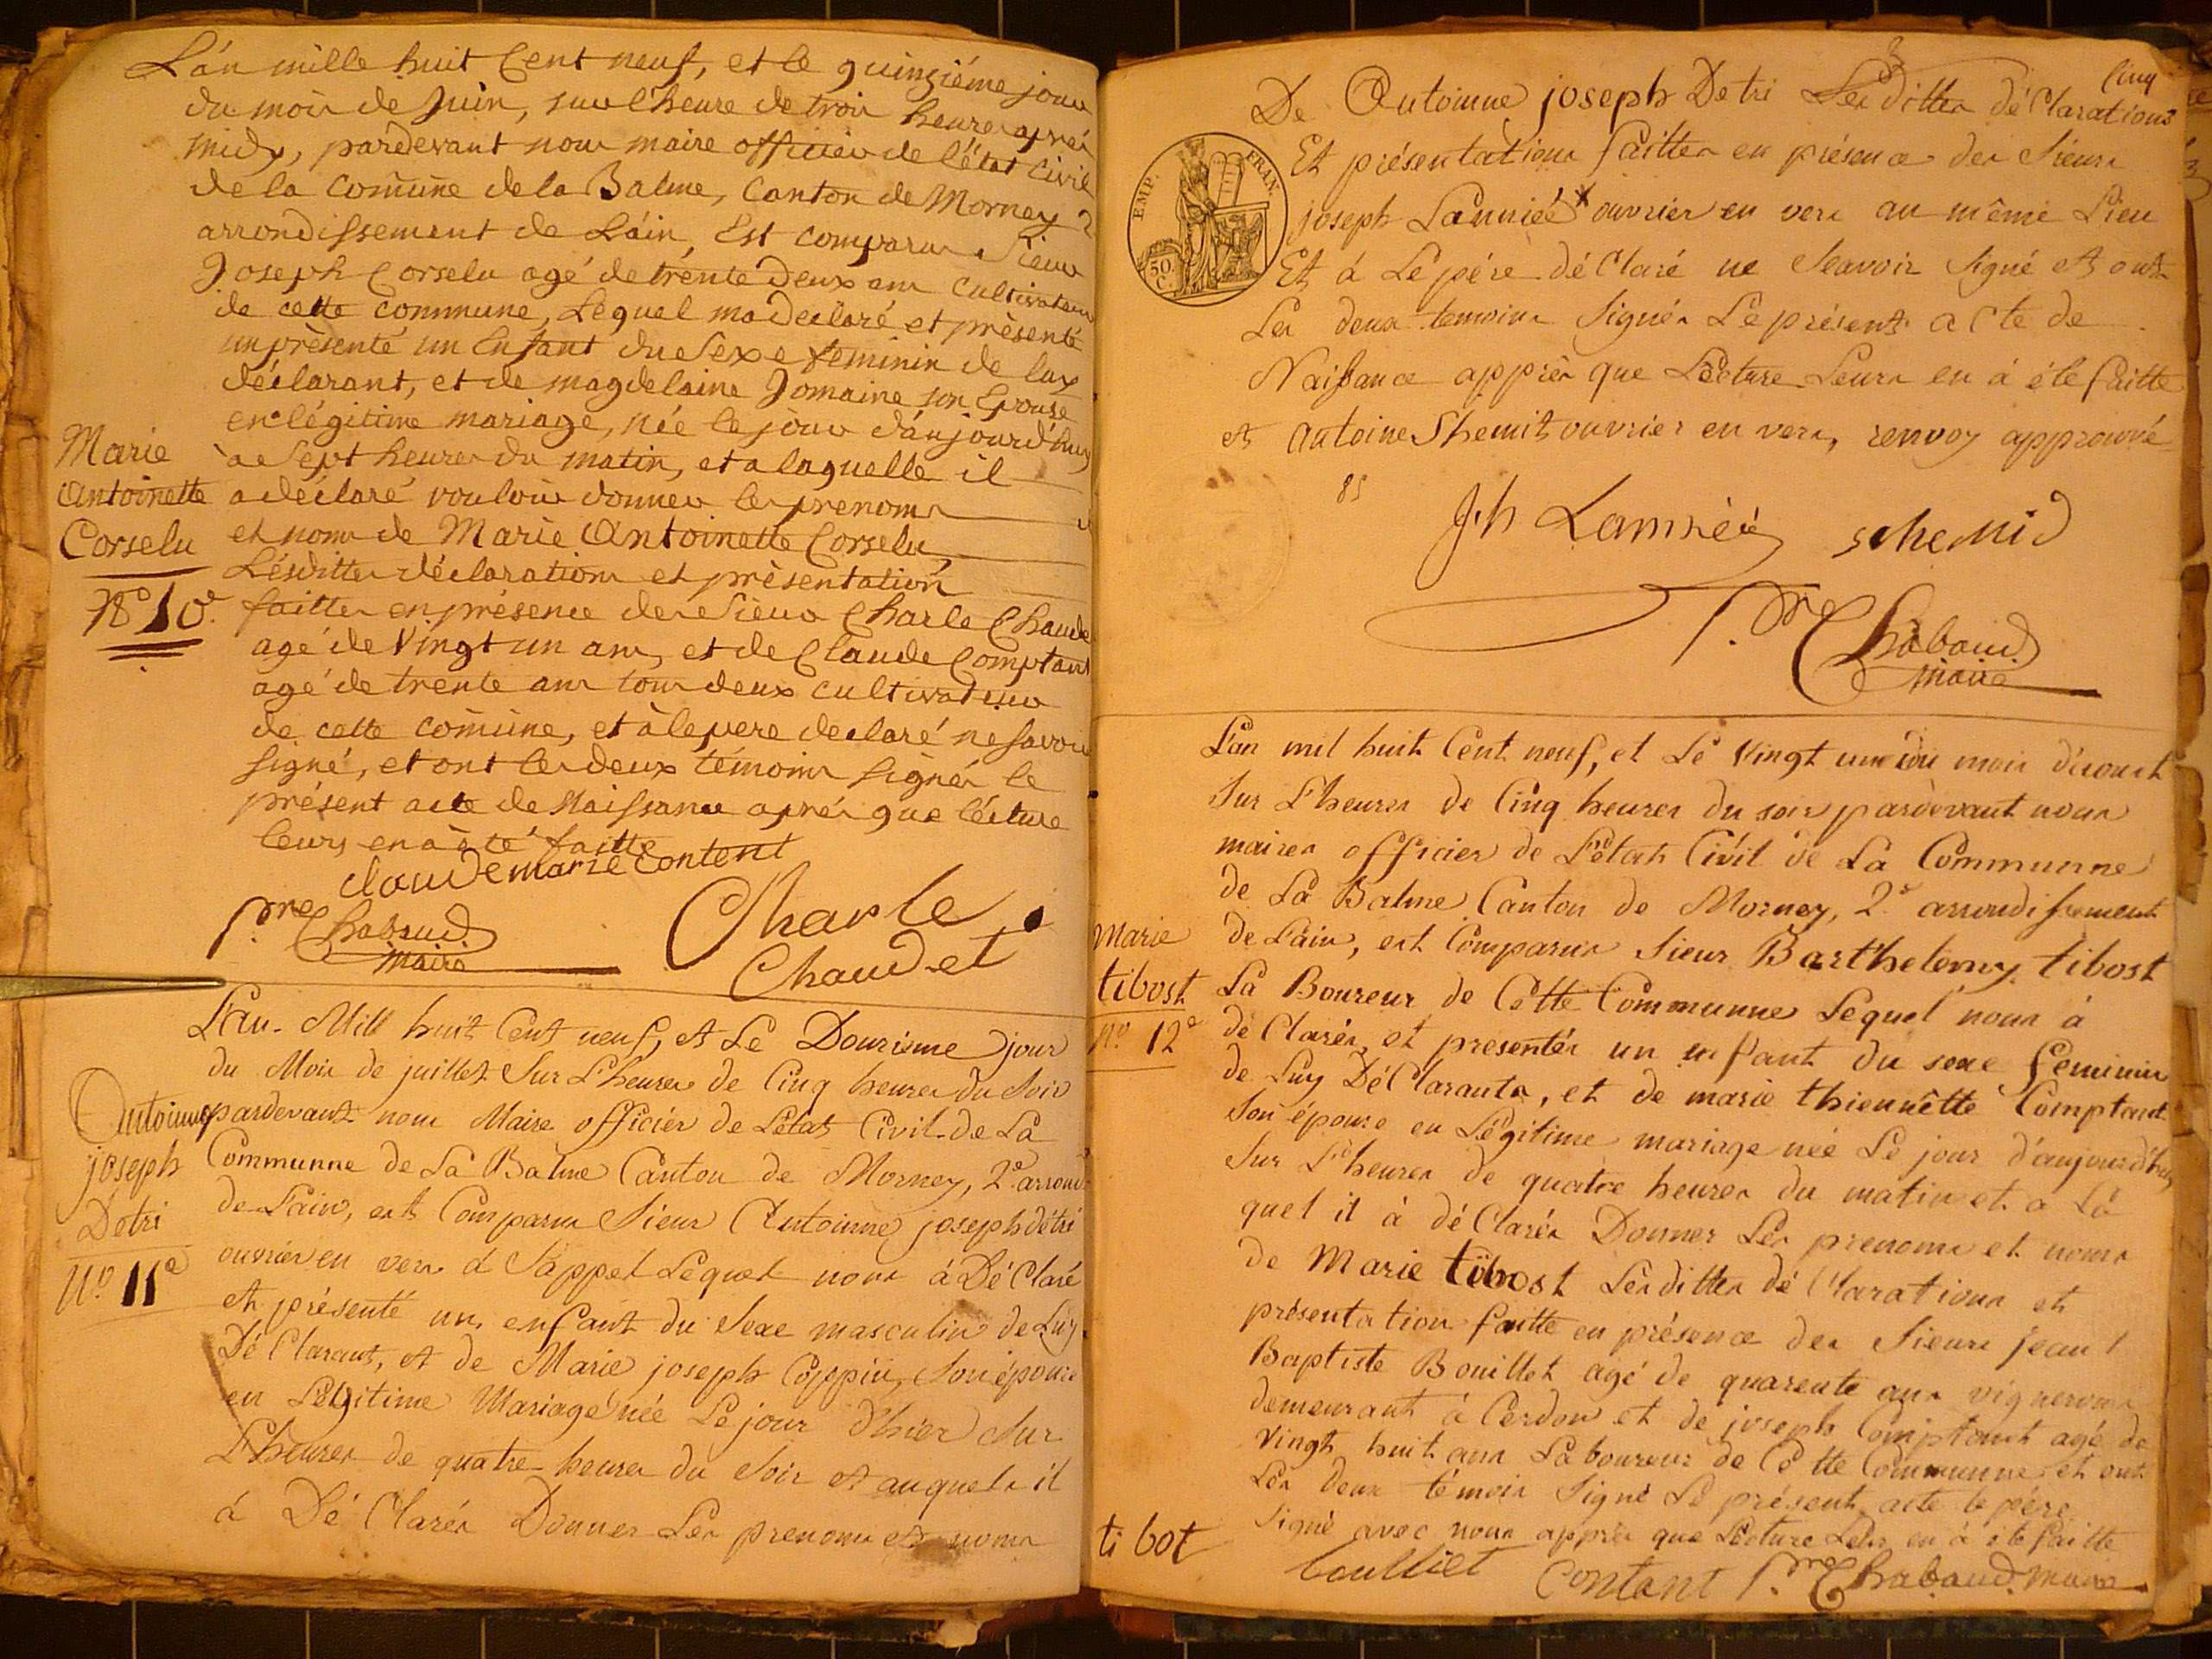 L'an mille huit Cent neuf, et le quinziéme jour
du mois de Juin, sur l'heure de trois heures aprés
midy, pardevant nous maire officier de l'état civil
de la Com̃une de la Balme, Canton de Mornay 2
arrondissement de L'ain, Est comparu Sieur
Joseph Corselu agé de trente deux ans cultivateur
de cette commune, Lequel ma declaré et présenté
un présenté un Enfant du Sexe feminin de luy
déclarant, et de magdelaine Jomaine son Epouse
en légitime mariage, née le jour d'aujourd'huy
à Sept heures du matin, et a laquelle il
a déclaré vouloir donner les prenoms
et noms de Marie Antoinette Corselu
Lésdittes déclarations et présentation
faittes en présence des Sieurs Charle Chaudet
agé de Vingt un ans, et de Claude Comptant
agé de trente ans tous deux cultivateur
de cette com̃une, et à le pere declaré ne savoir
signé, et ont les deux témoins signés le
présent acte de Naissance aprés que lécture
leurs en à été faitte
Marie
Antoinette
Corselu
N° 10e
claude marie content
Pre Chabaud
Maire
Charle
Chaudet
L'an Mill huit Cent neuf, et Le Douzisme jour
du Mois de juillet Sur L'heures de Cinq heures du Soir
pardevant nous Maire officiér de L'état Civil de La
Communne de La Balme Canton de Morney, 2e arrond.
de L'ain, est Comparus Sieur Antoinne joseph détri
ouvrier en vers à Sappel Lequel nous à Dé Claré
et présenté un enfant du Sexe masculin de Luy
Dé Clarant, et de Marie joseph Coppin, Son épouse
en Légitime Mariage née Le jour d'hiér Sur
L'heures de quatre heures du Soir et auquels il
à Dé Clarér Donner Les prenoms et noms
Antoinne
joseph
Detri
N° 11e
Cinq
De Antoinne joseph Detri Les dittes dé Clarations
Et présentations faittes en présence des Sieurs
joseph Lanniéé x ouvrier en vers au même Lieu
Et á Le pére dé Claré ne Scavoir Signé et ont
Les deux temoins Signés Le présent acte de
Naissance apprès que Lécture Leurs en á éte faitte
et antoine Shemit ouvrier en vers, renvoy approuvé
EMP. FRAN.
50.
C.
85
Jh Lamnéé
scheMid
Pre Chabaud
maire
L'an mil huit Cent neuf, et Lé Vingt un du mois d'aoust
Sur L'heures de Cinq heures du soir pardevant nous
maires officier de L'état Civil de La Communne
de La Balme Canton de Morney, 2e arrondissement
de L'ain, est Comparus Sieur Barthelemy tibost
La Boureur de Cette Communne Lequel nous à
dé Clarér, et presentér un enfant du sexe feminin
de Luy Dé Clarants, et de marie thiennêtte Comptant
Son épouse en Légitime mariage née Le jour d'aujourd'huy
Sur L'heures de quatre heures du matin et a La
quel il à dé Clarér Donner Les prenoms et noms
de Marie tibost Les dittes dé Clarations et
présentation faitte en présence des Sieurs jean
Baptiste Bouillet agé de quarente ans vignerons
demeurant à Cerdon et de joseph Comptant agé de
Vingt huit ans Laboureur de Cette Communne et ont
Les deux témoin Signé Le présent acte le pére
Signé avec nous apprès que Lécture Leurs en à été faitte
Marie
tibost
no 12e
ti bot
boulliet
Contant
Pre Chabaud maire